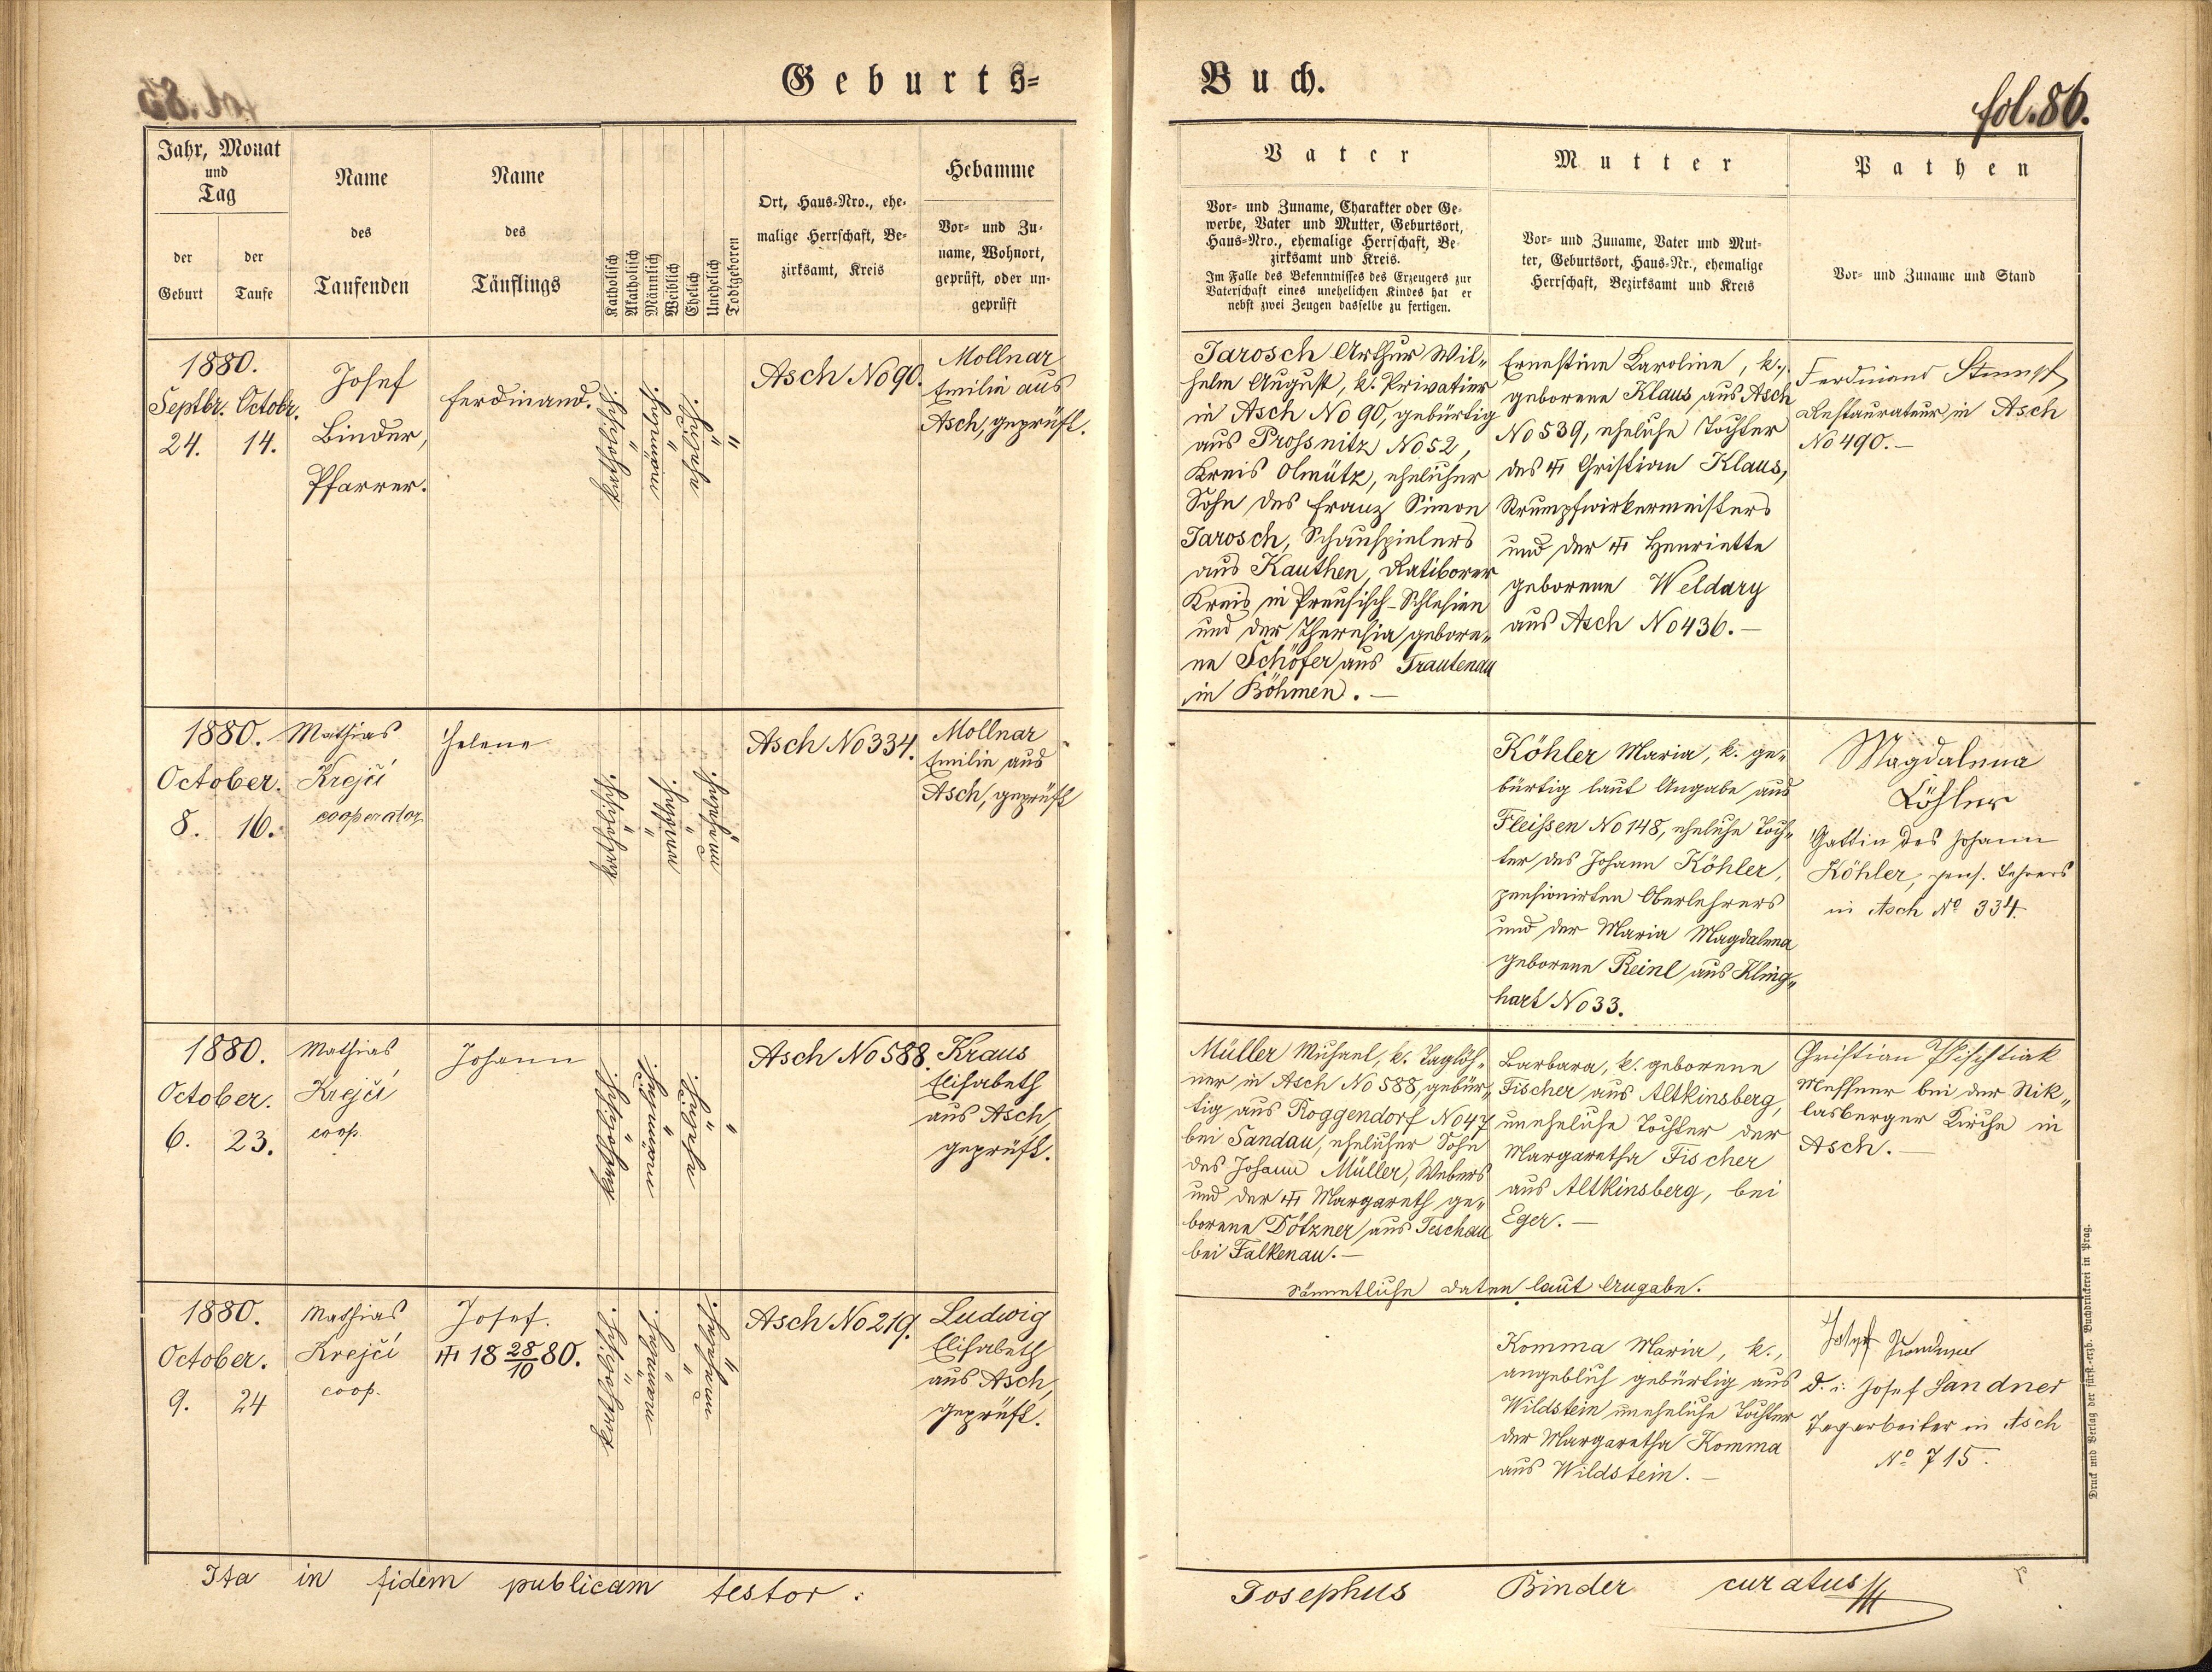 Geburts=
Jahr, Monat
und
Tag
der
Geburt
der
Taufe
Name
des
Taufenden
Name
des
Täuflings
Katholisch
Akatholisch
Männlich
Weiblich
Ehelich
Unehelich
Todtgeboren
Ort, Haus-Nro., ehe-
malige Herrschaft, Be-
zirksamt, Kreis
Hebamme
Vor- und Zu-
name, Wohnort,
geprüft, oder un-
geprüft
1880.
Septbr. Octobr.
24. 14.
Josef
Binder,
Pfarrer.
Ferdinand.
katholisch.
"
männlich.
"
ehelich.
"
"
Asch No 90.
Mollnar
Emilie aus
Asch, geprüft.
1880.
October.
8. 16.
Mathias
Krejčí
cooperator
Helene
katholisch.
"
"
weiblich.
"
unehelich.
"
Asch No 334.
Mollnar
Emilie aus
Asch, geprüft
1880.
October.
6. 23.
Mathias
Krejčí
coop.
Johann
katholisch.
"
männlich.
"
ehelich.
"
"
Asch No 588.
Kraus
Elisabeth
aus Asch,
geprüft.
1880.
October.
9. 24
Mathias
Krejčí
coop.
Josef.
18 28/10 80.
katholisch.
"
männlich.
"
"
unehelich.
"
Asch No 219.
Ludwig
Elisabeth
aus Asch,
geprüft.
Ita in fidem publicam testor :
Buch.
fol. 86.
Vater
Vor- und Zuname, Charakter oder Ge-
werbe, Vater und Mutter, Geburtsort,
Haus-Nro., ehemalige Herrschaft, Be-
zirksamt und Kreis.
Im Falle des Bekenntnisses des Erzeugers zur
Vaterschaft eines unehelichen Kindes hat er
nebst zwei Zeugen dasselbe zu fertigen.
Mutter
Vor- und Zuname, Vater und Mut-
ter, Geburtsort, Haus-Nr., ehemalige
Herrschaft, Bezirksamt und Kreis
Pathen
Vor- und Zuname und Stand
Jarosch Arthur Wil-
helm August, k. Privatier
in Asch No 90, gebürtig
aus Prossnitz No 52,
Kreis Olmütz, ehelicher
Sohn des Franz Simon
Jarosch, Schauspielers
aus Kauthen, Ratiborer
Kreis in Preusisch-Schlesien
und der Theresia gebore-
ne Schöfer aus Trautenau
in Böhmen. —
Ernestine Karoline, k.,
geborene Klaus aus Asch
No 539, eheliche Tochter
des Christian Klaus,
Strumpfwirkermeisters
und der Henriette
geborene Weldary
aus Asch No 436. —
Ferdinand Stumpf
Restaurateur in Asch
No 490. —
Köhler Maria, k. ge-
bürtig laut Angabe aus
Fleißen No 148, eheliche Toch-
ter des Johann Köhler,
pensionirten Oberlehrers
und der Maria Magdalena
geborene Reinl aus Kling-
hart No 33.
Magdalena
Köhler
Gattin des Johann
Köhler, pens. Lehrers
in Asch No 334.
Müller Michael, k. Taglöh-
ner in Asch No 588, gebür-
tig aus Roggendorf No 47
bei Sandau, ehelicher Sohn
des Johann Müller, Webers
und der Margareth ge-
borene Dötzner aus Teschau
bei Falkenau. —
Barbara, k. geborene
Fischer aus Altkinsberg,
uneheliche Tochter der
Margaretha Fischer
aus Altkinsberg, bei
Eger. —
Christian
Messner bei der Nik-
lasberger Kirche in
Asch. —
Sämmtliche Daten laut Angabe.
Komma Maria, k.,
angeblich gebürtig aus
Wildstein uneheliche Tochter
der Margaretha Komma
aus Wildstein. —
Josef Sandner
d. i. Josef Sandner
Tagarbeiter in Asch
No 715.
Josephus Binder curatus
Druck und Verlag der fürst.-erzb. Buchdruckerei in Prag.